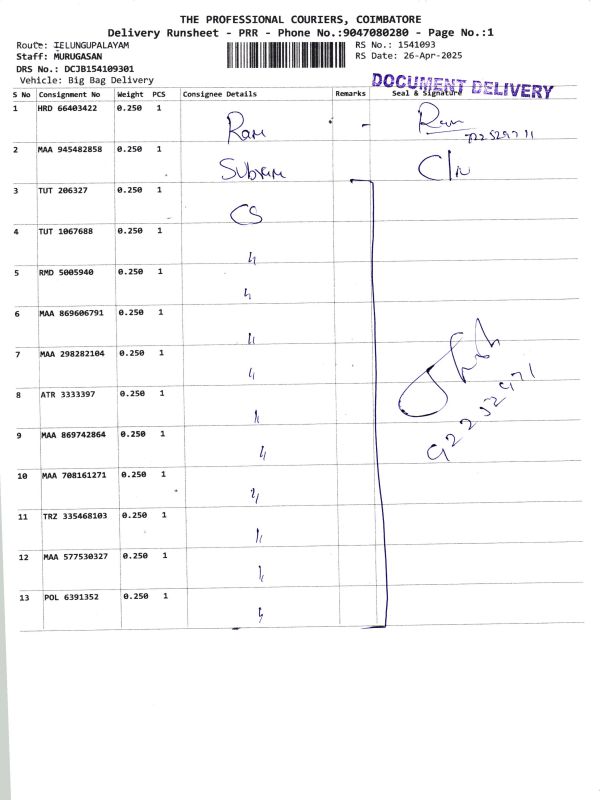 THE PROFESSIONAL COURIERS, COIMBATORE
Delivery Runsheet - PRR - Phone No.:9047080280 - Page No.:1
Route: TELUNGUPALAYAM
RS No.: 1541093
Staff: MURUGASAN
RS Date: 26-Apr-2025
DRS No.: DCJB154109301
Vehicle: Big Bag Delivery
DOCUMENT DELIVERY
S No Consignment No Weight PCS Consignee Details Remarks Seal & Signature
1 HRD 66403422 0.250 1 Ram - Ram
2 MAA 945482858 0.250 1 Subram
3 TUT 206327 0.250 1 CS
4 TUT 1067688 0.250 1 〃
5 RMD 5005940 0.250 1 〃
6 MAA 869606791 0.250 1 〃
7 MAA 298282104 0.250 1 〃
8 ATR 3333397 0.250 1 〃
9 MAA 869742864 0.250 1 〃
10 MAA 708161271 0.250 1 〃
11 TRZ 335468103 0.250 1 〃
12 MAA 577530327 0.250 1 〃
13 POL 6391352 0.250 1 〃